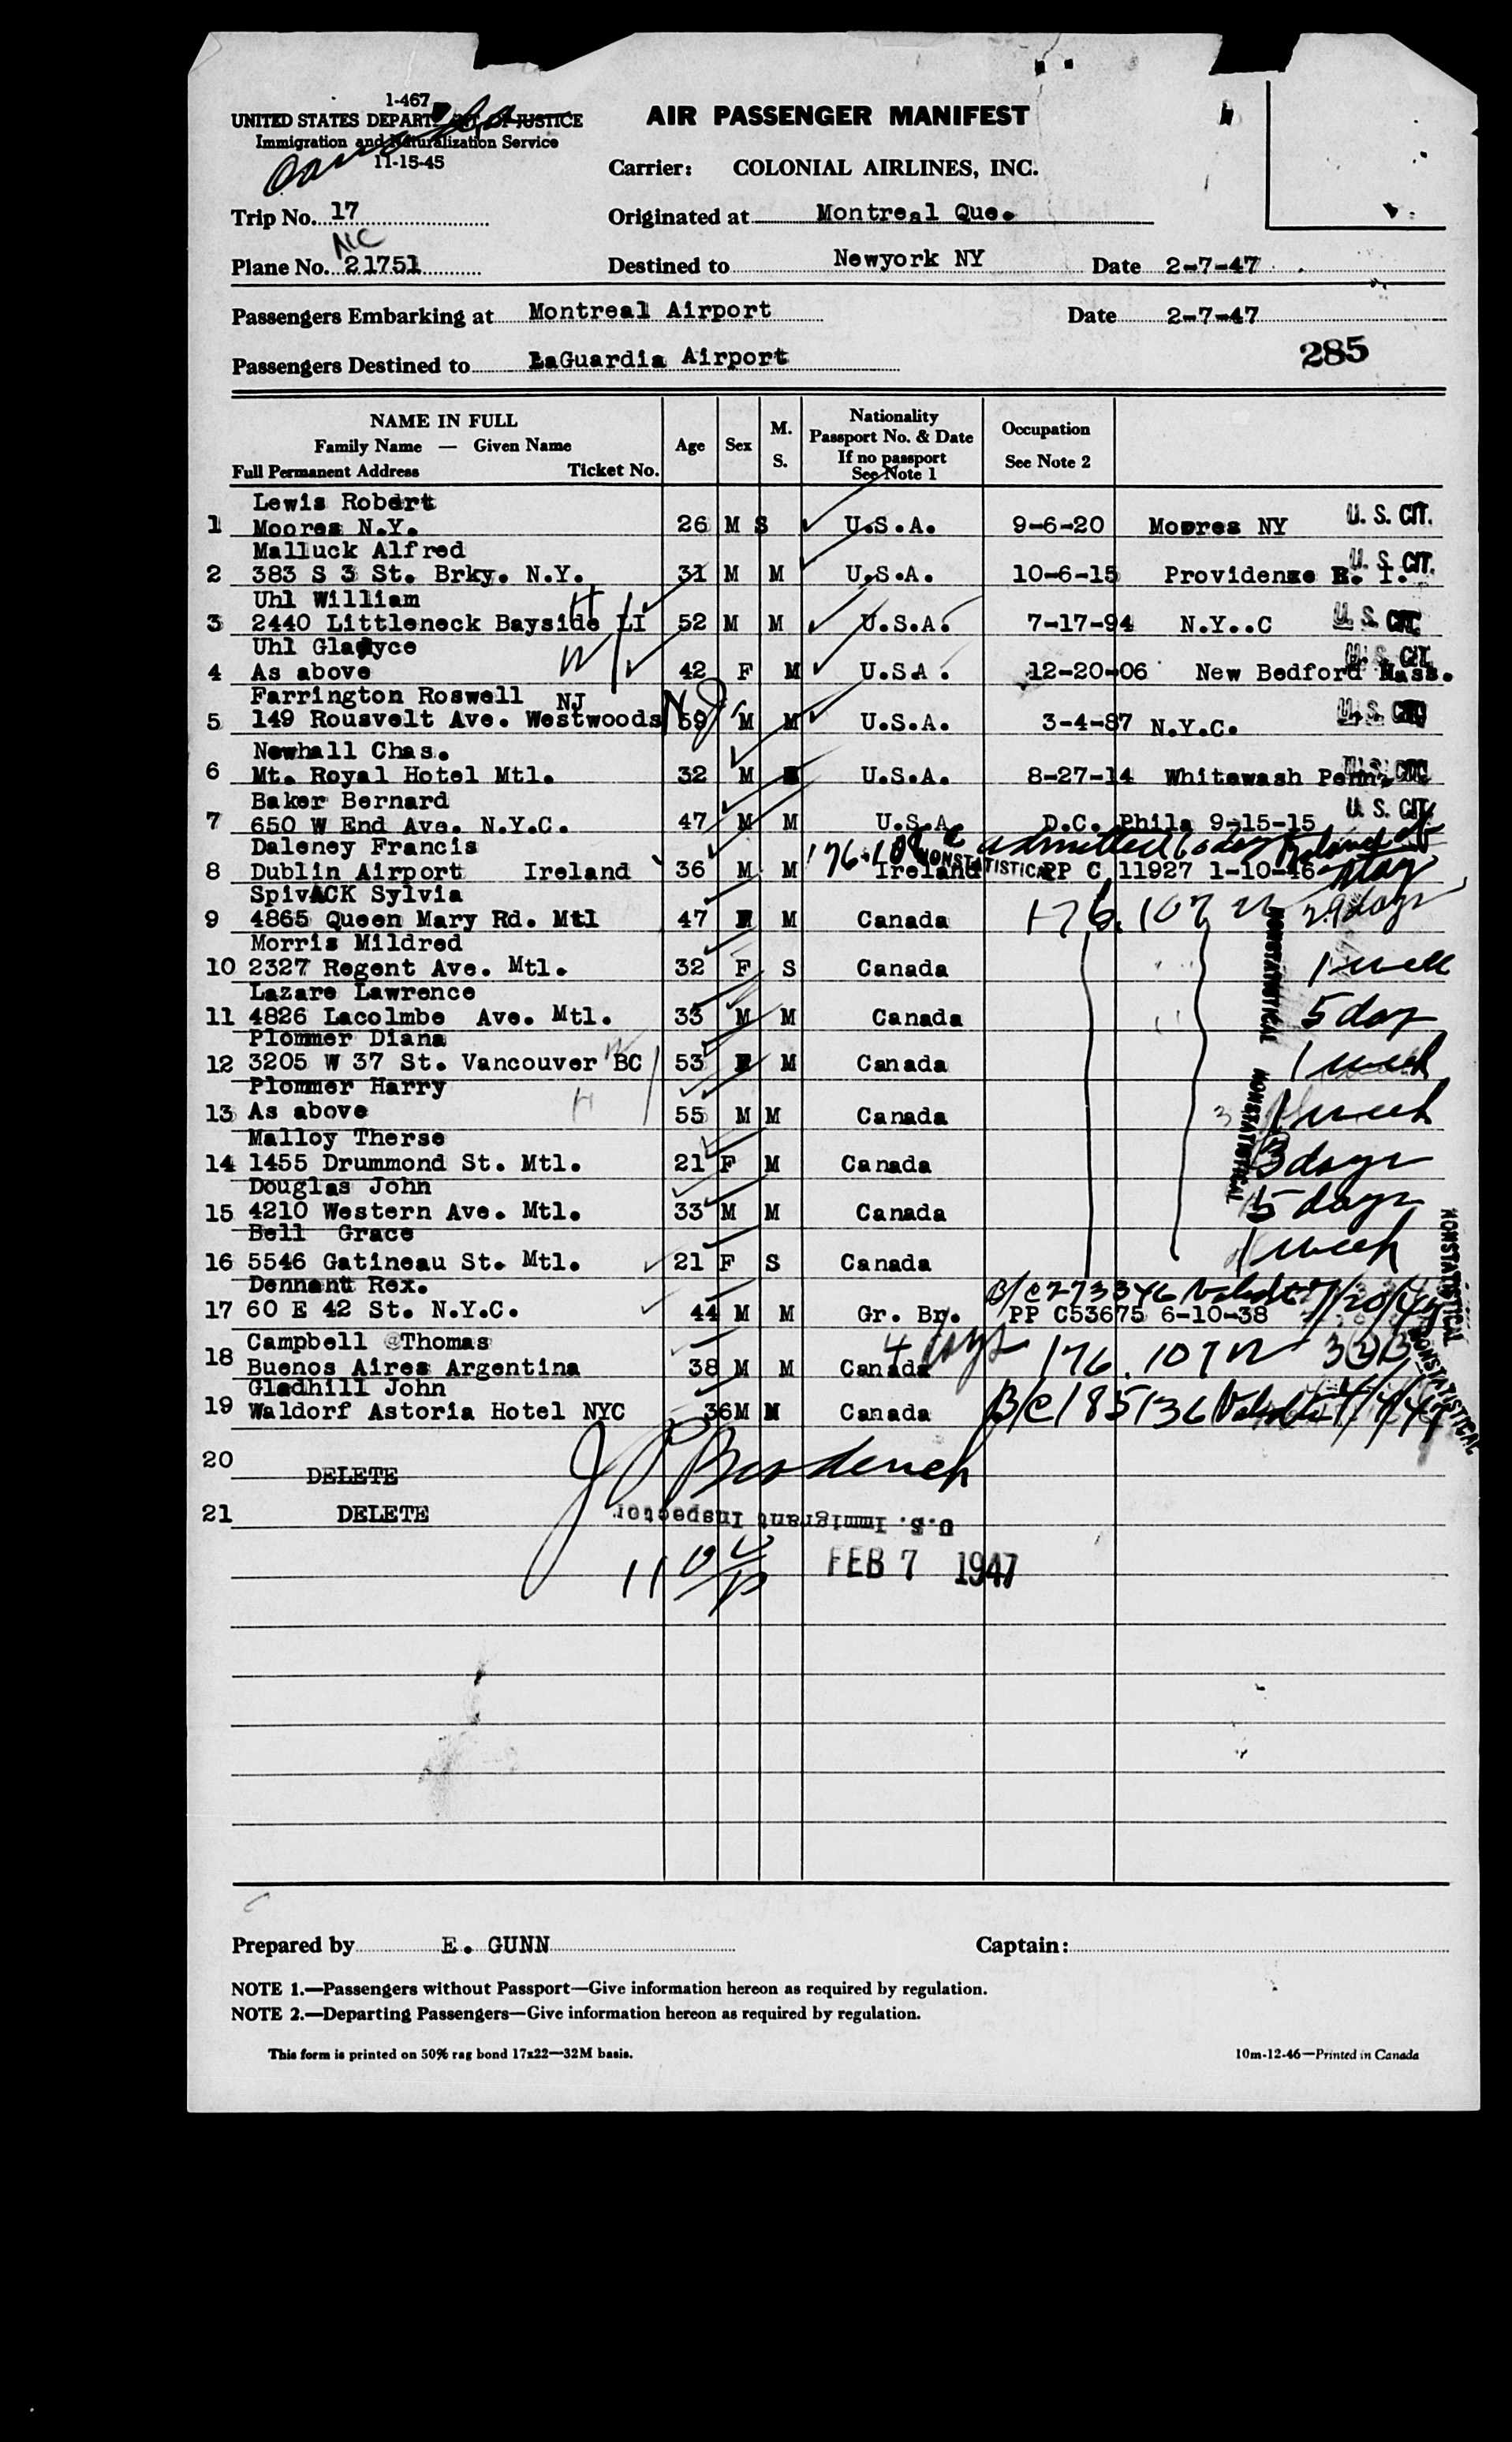 1-467
UNITED STATES DEPARTMENT OF JUSTICE
Immigration and Naturalization Service
11-15-45
AIR PASSENGER MANIFEST
Carrier: COLONIAL AIRLINES, INC.
Trip No. 17
Originated at Montreal Que.
NC
Plane No. 21751
Destined to Newyork NY Date 2-7-47
Passengers Embarking at Montreal Airport Date 2-7-47
Passengers Destined to LaGuardia Airport
285
NAME IN FULL
Family Name — Given Name
Full Permanent Address Ticket No.
Age Sex M. S.
Nationality
Passport No. & Date
If no passport
See Note 1
Occupation
See Note 2
Lewis Robert
1 Moores N.Y. 26 M S U.S.A. 9-6-20 Moores NY U. S. CIT.
Malluck Alfred
2 383 S 3 St. Brky. N.Y. 31 M M U.S.A. 10-6-15 Providense R. I. U. S. CIT.
Uhl William H
3 2440 Littleneck Bayside LI 52 M M U.S.A. 7-17-94 N.Y..C U. S. CIT
Uhl Gladyce W
4 As above 42 F M U.S.A. 12-20-06 New Bedford Mass. U. S. CIT.
Farrington Roswell NJ NJ
5 149 Rousvelt Ave. Westwoods 59 M M U.S.A. 3-4-87 N.Y.C. U. S. CIT
Newhall Chas.
6 Mt. Royal Hotel Mtl. 32 M U.S.A. 8-27-14 Whitewash Penn. U. S. CIT
Baker Bernard
7 650 W End Ave. N.Y.C. 47 M M U.S.A. D.C. Phila 9-15-15 U. S. CIT
Daleney Francis 176.108 admitted 60 days
8 Dublin Airport Ireland 36 M M Ireland NONSTATISTICAL PP C 11927 1-10-46 stay
SpivACK Sylvia
9 4865 Queen Mary Rd. Mtl 47 F M Canada 176.107 29 days
Morris Mildred
10 2327 Regent Ave. Mtl. 32 F S Canada 1 week
Lazare Lawrence
11 4826 Lacolmbe Ave. Mtl. 33 M M Canada 5 day
NONSTATISTICAL
Plommer Diana W
12 3205 W 37 St. Vancouver BC 53 F M Canada 1 week
Plommer Harry H
13 As above 55 M M Canada 1 week
NONSTATISTICAL
Malloy Therse
14 1455 Drummond St. Mtl. 21 F M Canada 3 days
Douglas John
15 4210 Western Ave. Mtl. 33 M M Canada 5 days
Bell Grace
16 5546 Gatineau St. Mtl. 21 F S Canada 1 week
NONSTATISTICAL
Dennant Rex. B/C 273346
17 60 E 42 St. N.Y.C. 44 M M Gr. Br. PP C53675 6-10-38
Campbell @Thomas 4 days
18 Buenos Aires Argentina 38 M M Canada 176.107
NONSTATISTICAL
Gladhill John
19 Waldorf Astoria Hotel NYC 36 M M Canada B/C 185136
20 DELETE
21 DELETE
U.S. Immigrant Inspector.
11
FEB 7 1947
Prepared by E. GUNN Captain:
NOTE 1.—Passengers without Passport—Give information hereon as required by regulation.
NOTE 2.—Departing Passengers—Give information hereon as required by regulation.
This form is printed on 50% rag bond 17x22—32M basis. 10m-12-46—Printed in Canada